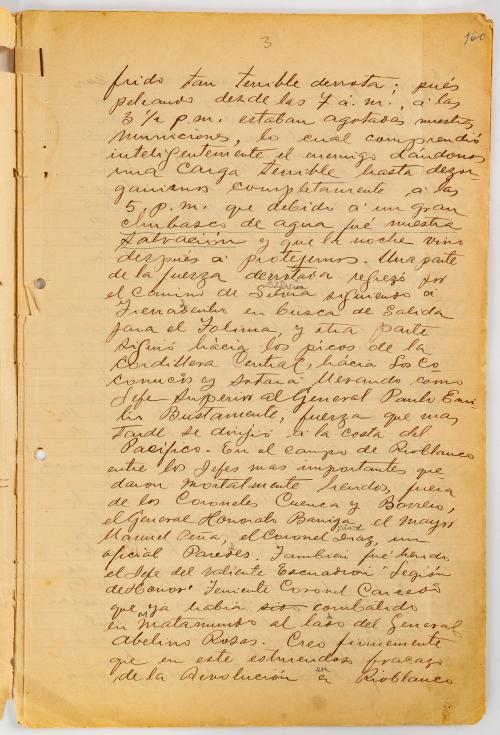 3
160
frido tan terrible derrota; pués
peleando desde las 7 a.m., á las
3 ½ p.m. estaban agotadas nuestras
municiones, lo cual comprendió
inteligentemente el enemigo dándonos
una carga terrible hasta desor
ganizarnos completamente á las
5, p.m. que debido á un gran
chubasco de agua fué nuestra
salvación y que la noche vino
después á protejernos. Una parte
de la fuerza derrotada regresó por
Silvia
el camino de Silvia siguiendo á
Tierradentro en busca de salida
para el Tolima, y otra parte
siguió hácia los picos de la
Cordillera Central, hácia los Co
conucos y Sotará llevando como
Jefe Superior al General Paulo Emi
lio Bustamente, fuerza que mas
tarde se dirijió á la costa del
Pacífico. En el campo de Rioblanco
entre los Jefes mas importantes que
daron mortalmente heridos, fuera
de los Coroneles Cuenca y Borrero,
el General Honorato Barriga, el mayor
Manuel Peña, el Coronel Diaz, un
oficial Paredes. Tambien fué herido
el Jefe del valiente Escuadrón "Legión
de Honor" Teniente Coronel Caicedo
que ya habia sido combatido
en Matamundo al lado del General
Abelino Rosas. Creo firmemente
que en este estruendoso fracaso
en
de la Revolución en Rioblanco